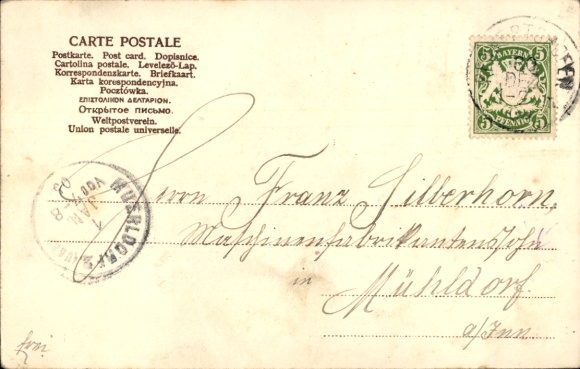 CARTE POSTALE
Postkarte. Post card. Dopisnice.
Cartolina postale. Levelező-Lap.
Korrespondenzkarte. Briefkaart.
Karta korespondencyjna.
Pocztówka.
ΕΠΙΣΤΟΛΙΚΟΝ ΔΕΛΤΑΡΙΟΝ.
Открытое письмо.
Weltpostverein.
Union postale universelle.
BAYERN
5 5
5 5
PFENNIG
MUEHLDORF
1 JAN
Herrn Franz Silberhorn,
Maschinenfabrikantenssohn
in
Mühldorf
a/Inn
frei